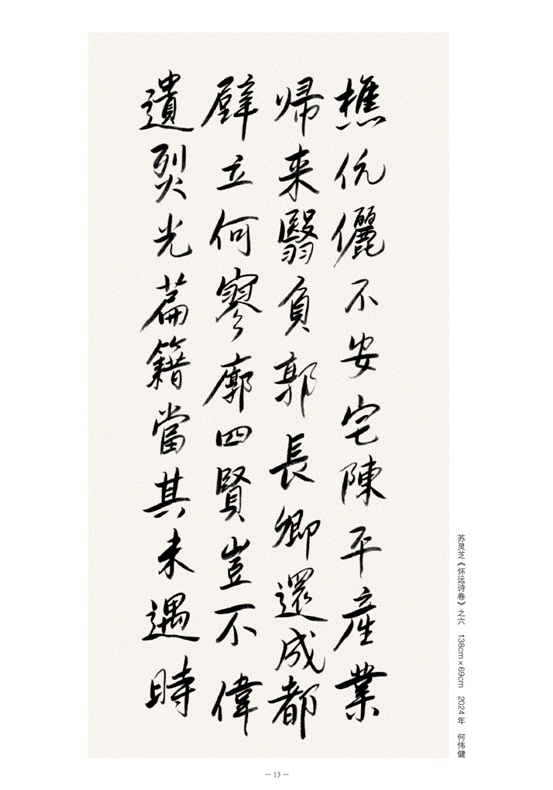 樵伉儷不安宅陳平產業
帰来翳負郭長卿還成都
壁立何寥廓四賢豈不偉
遺烈光篇籍當其未遇時
苏灵芝《怀远诗卷》之六 138cm×69cm 2024年 何伟健
— 13 —